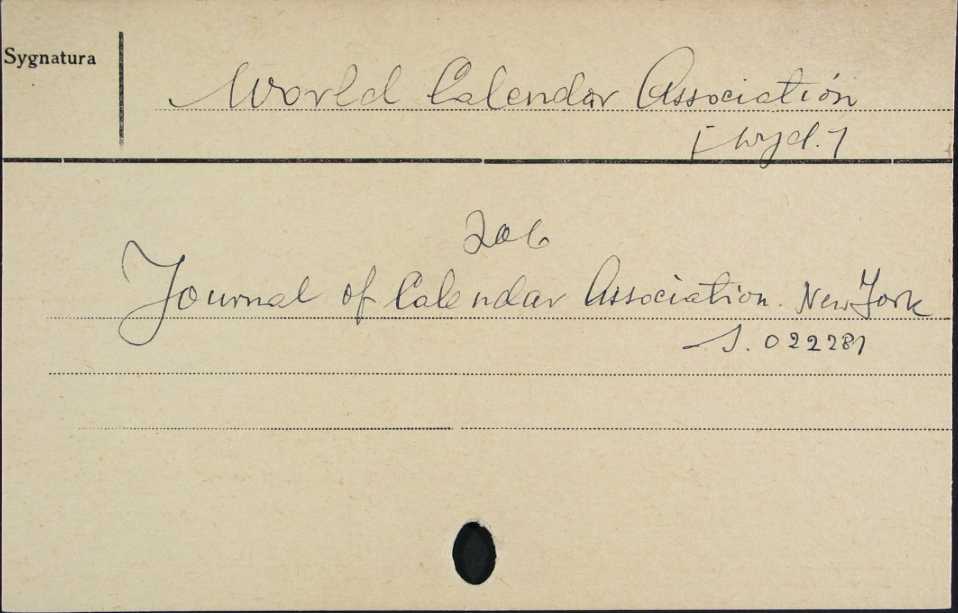 Sygnatura
World Calendar Association
[wyd.]
Zob
Journal of Calendar Association. New York
S. 022281